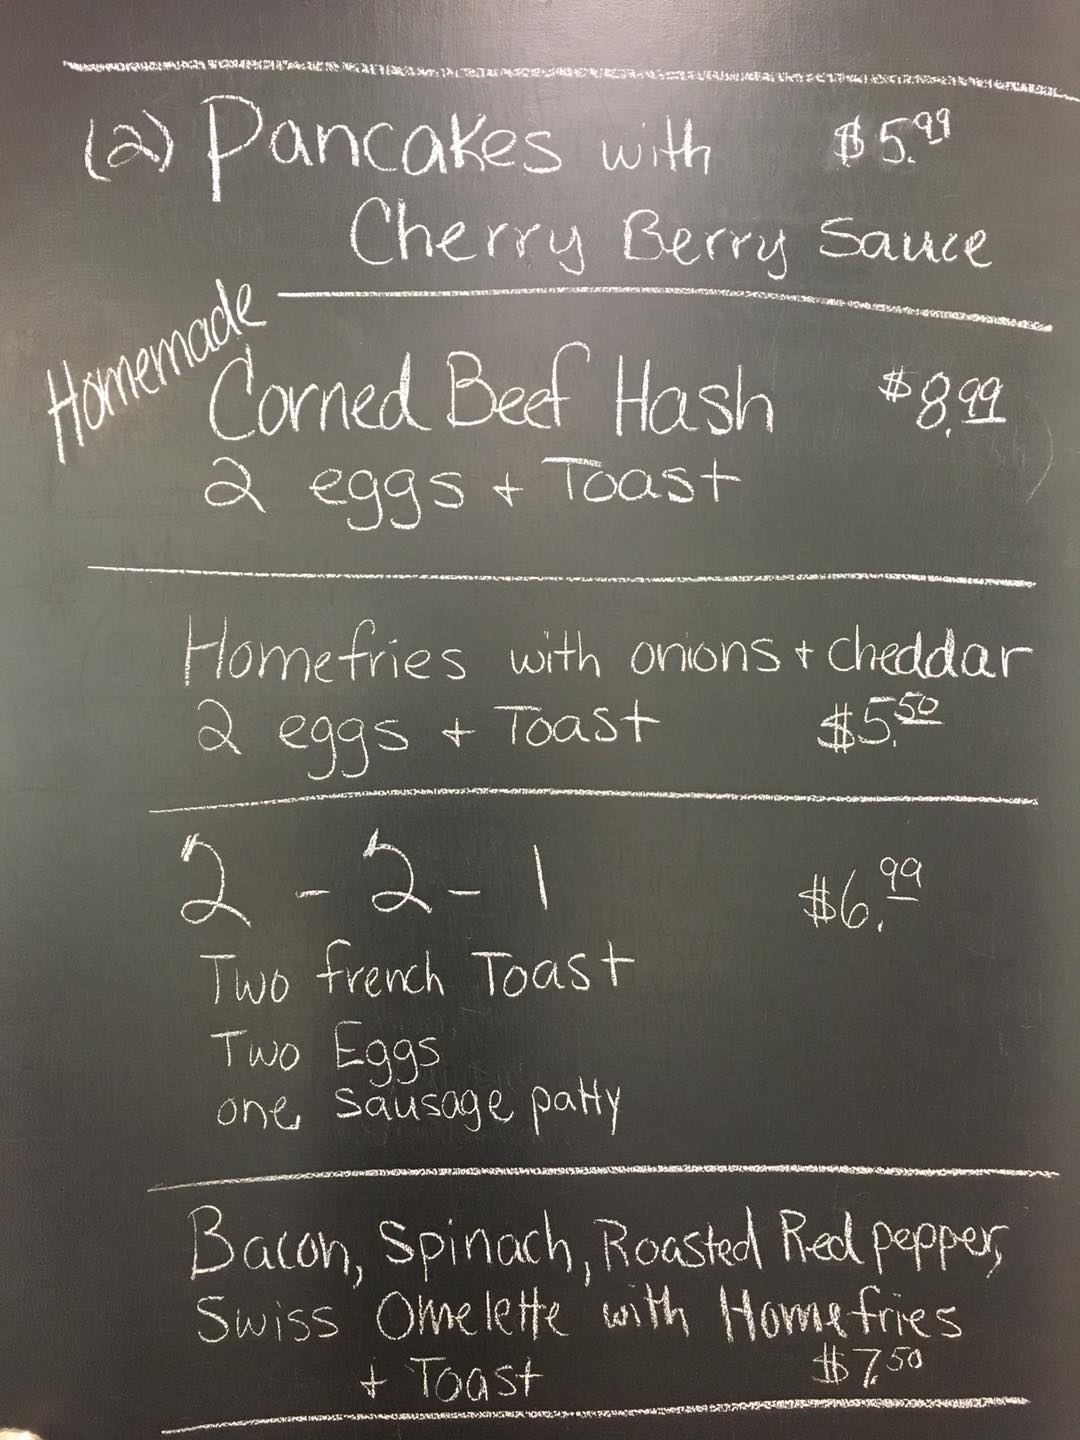 (2) Pancakes with $5.99
Cherry Berry Sauce
Homemade
Corned Beef Hash $8.99
2 eggs + Toast
Homefries with onions + cheddar
2 eggs + Toast $5.50
2 - 2 - 1 $6.99
Two french Toast
Two Eggs
one Sausage patty
Bacon, Spinach, Roasted Red pepper,
Swiss Omelette with Homefries
+ Toast $7.50